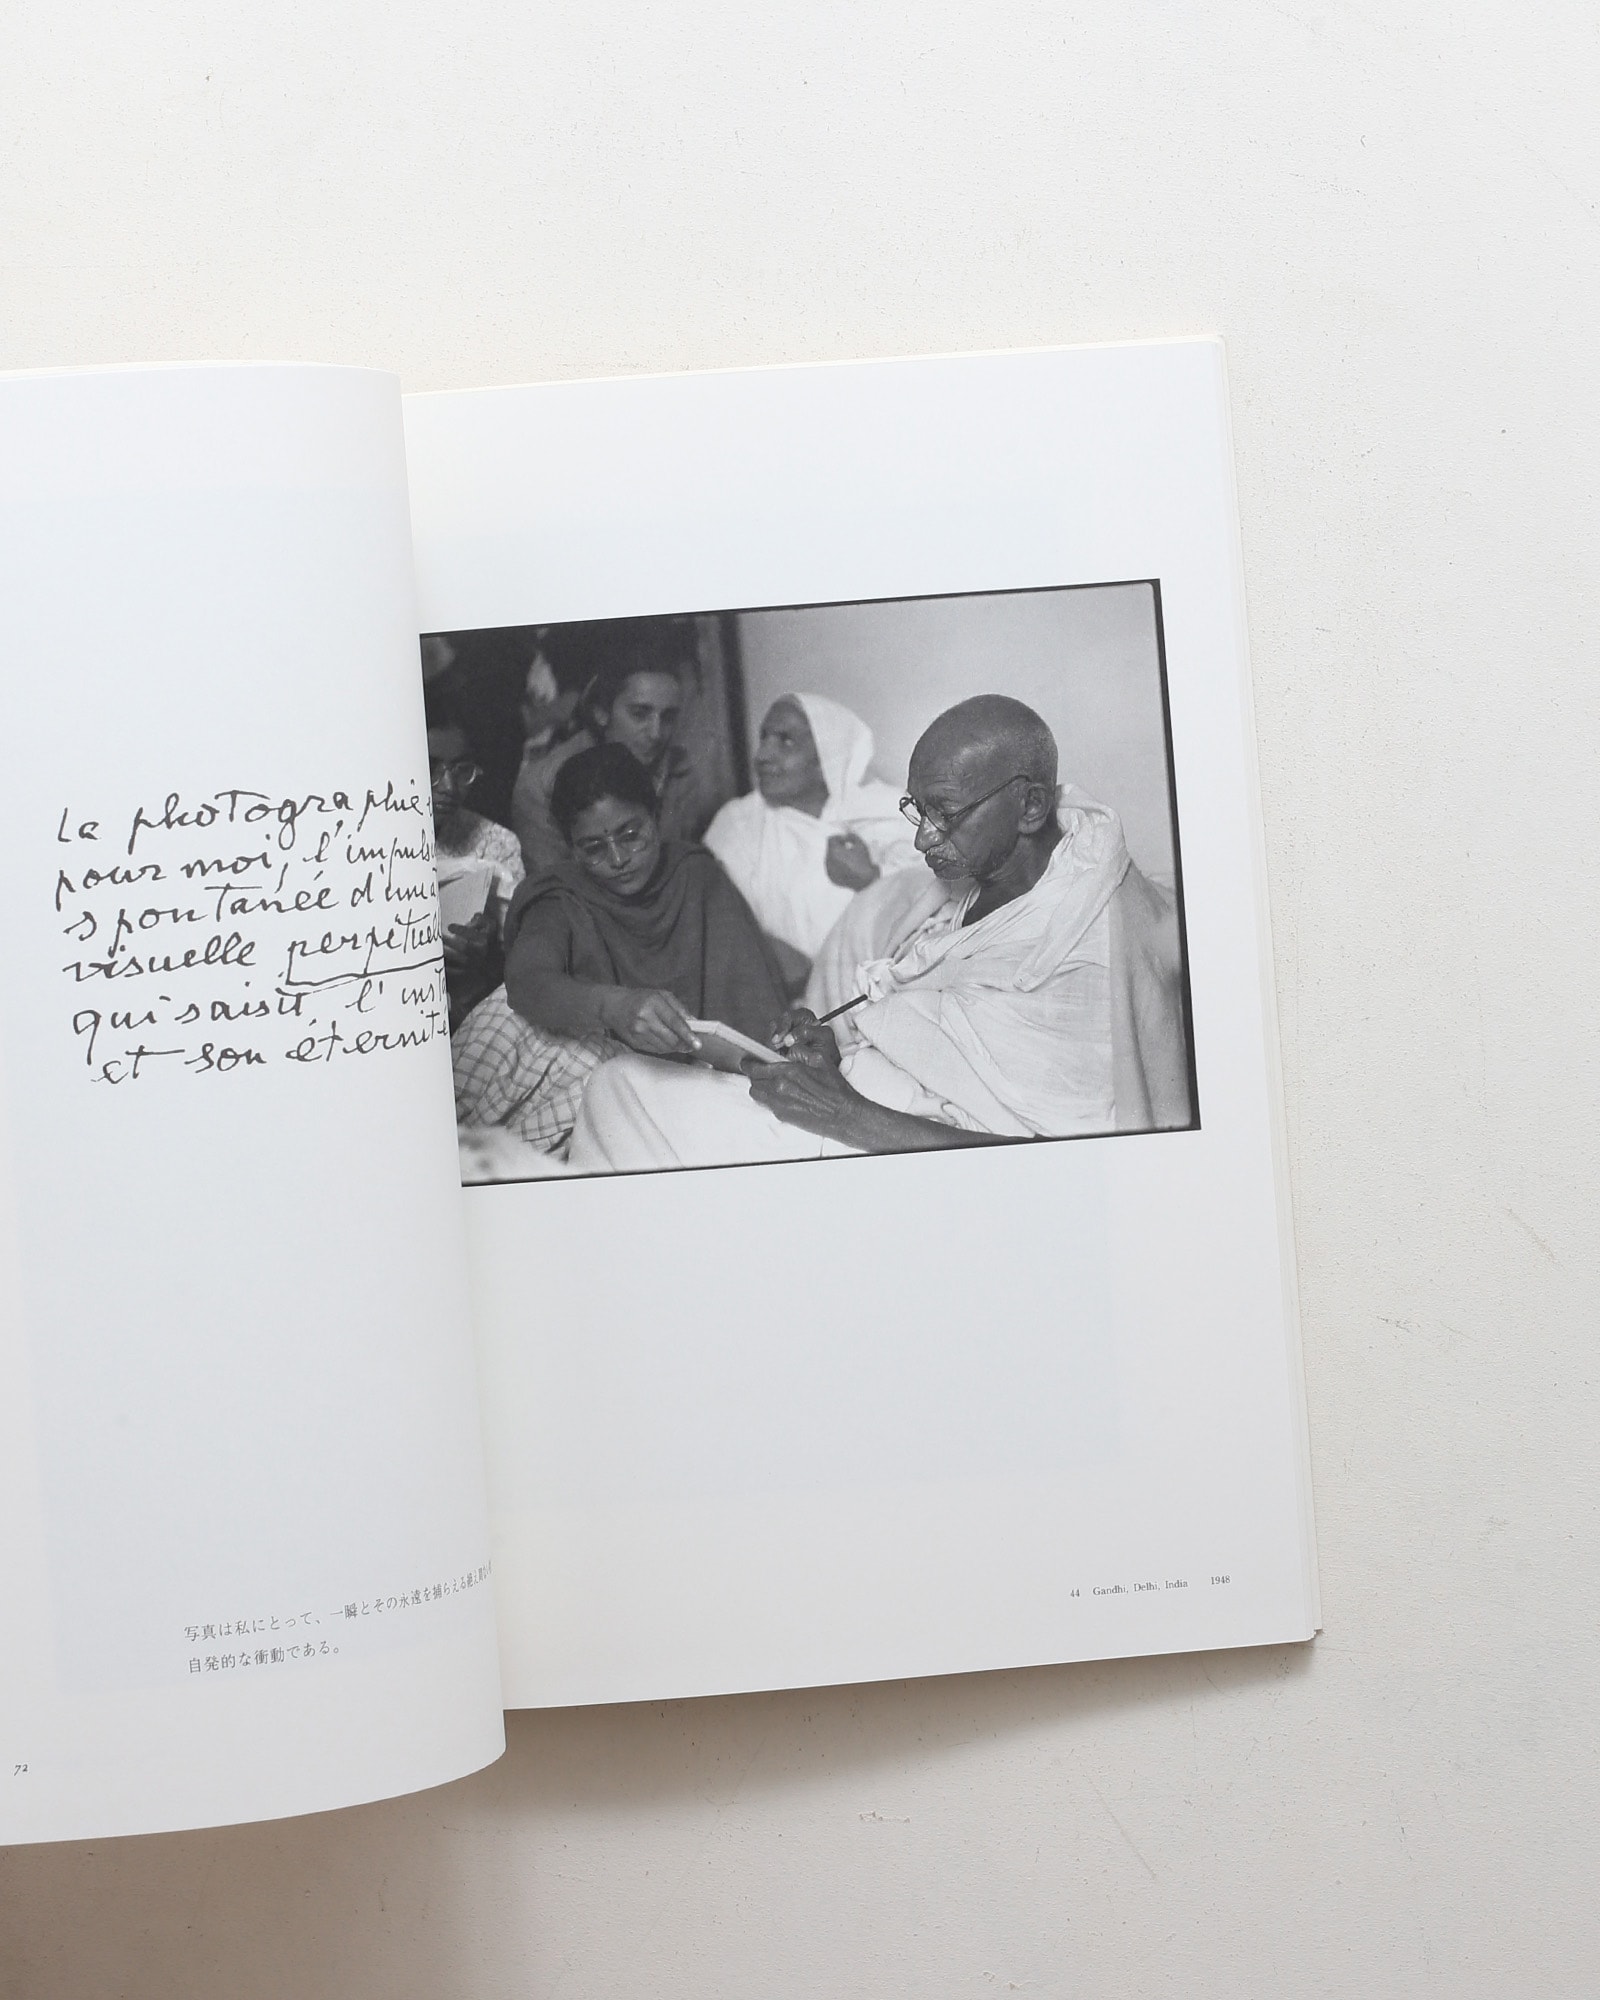 La photographie
pour moi, l'impuls
spontanée d'une
visuelle perpétuell
qui saisit, l'inst
et son éternité
写真は私にとって、一瞬とその永遠を捕らえる絶え間
自発的な衝動である。
72
44 Gandhi, Delhi, India 1948